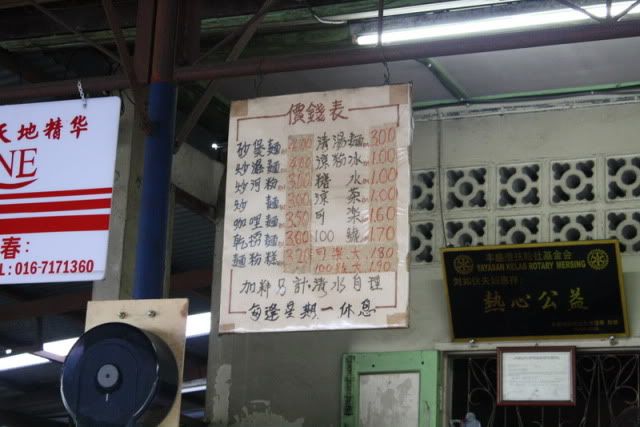 天地精华
NE
春：
L : 016-7171360
價錢表
砂煲麵 清湯麵 3.00
涼粉冰 1.00
炒河粉 3.00 糖水 1.00
炒麵 3.00 涼茶
咖哩麵 3.50 可樂 1.60
乾撈麵 100號 1.70
麵粉糕 3.20 可樂大 1.80
100號大 1.90
加料另計清水自理
每逢星期一休息
YAYASAN KELAB ROTARY MERSING
熱心公益